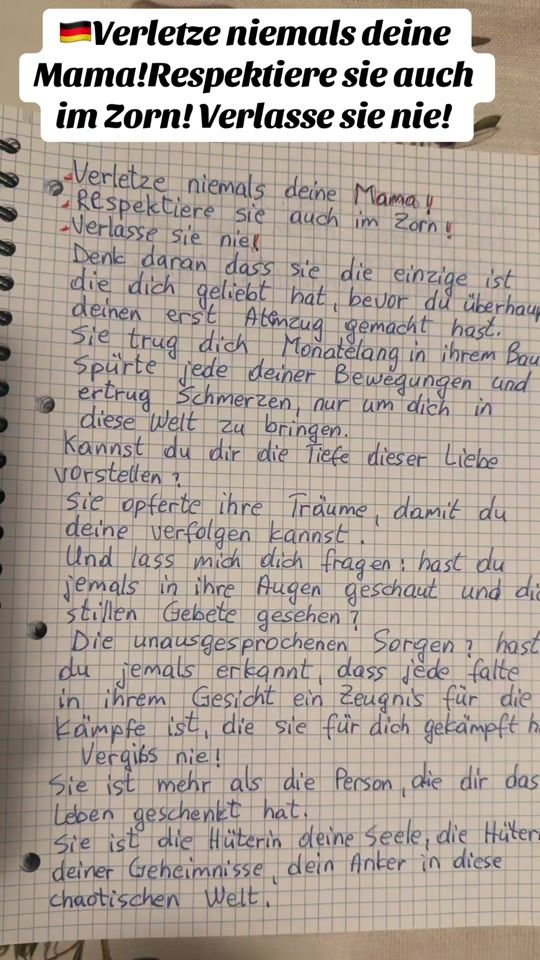 🇩🇪Verletze niemals deine
Mama!Respektiere sie auch
im Zorn! Verlasse sie nie!
-Verletze niemals deine Mama!
-Respektiere sie auch im Zorn!
-Verlasse sie nie!
Denk daran dass sie die einzige ist
die dich geliebt hat, bevor du überhaup
deinen erst Atemzug gemacht hast.
Sie trug dich Monatelang in ihrem Bau
Spürte jede deiner Bewegungen und
ertrug Schmerzen, nur um dich in
diese Welt zu bringen.
Kannst du dir die Tiefe dieser Liebe
vorstellen?
Sie opferte ihre Träume, damit du
deine verfolgen kannst.
Und lass mich dich fragen: hast du
jemals in ihre Augen geschaut und di
stillen Gebete gesehen?
Die unausgesprochenen Sorgen? hast
du jemals erkannt, dass jede falte
in ihrem Gesicht ein Zeugnis für die
Kämpfe ist, die sie für dich gekämpft h
Vergiss nie!
Sie ist mehr als die Person, die dir das
Leben geschenkt hat.
Sie ist die Hüterin deine Seele, die Hüter
deiner Geheimnisse, dein Anker in diese
chaotischen Welt.